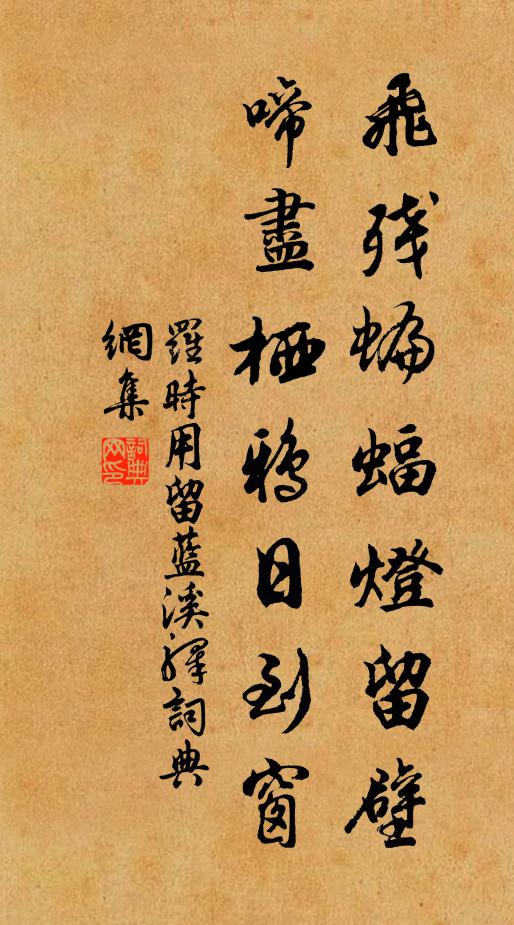 飛殘蝙蝠燈留壁
啼盡栖鴉日到窗
羅時用留藍溪驛詞典
網集
詞典網印